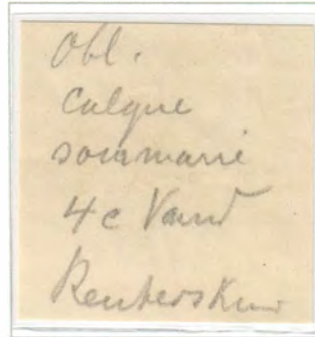 Obl.
calque
sommaire
4c Vaud
Reuterskiw